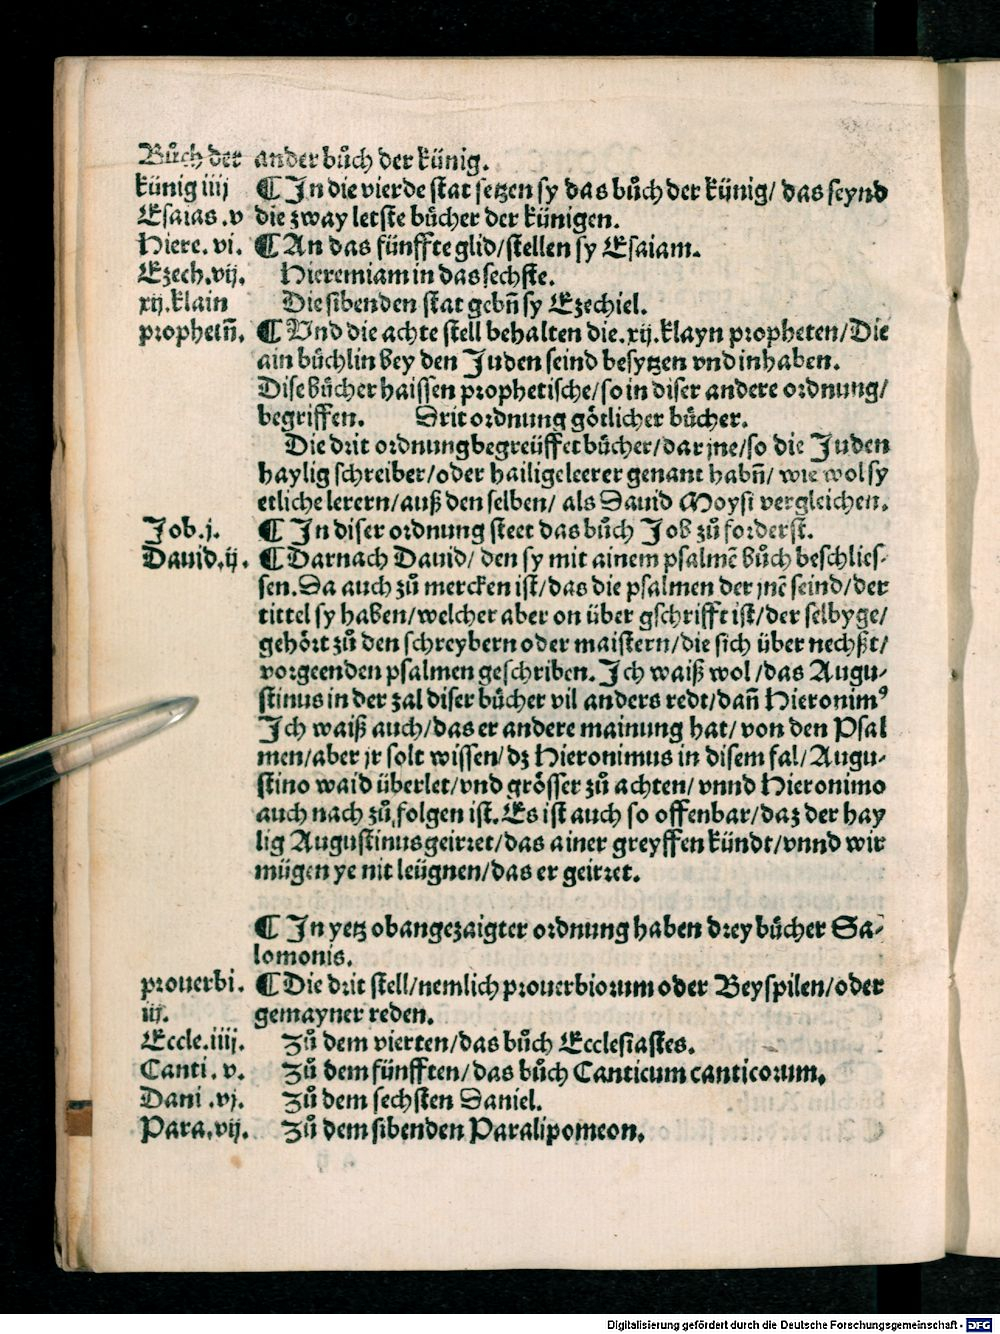 Bůch der ander bůch der künig.
künig iiij ¶ In die vierde stat setzen sy das bůch der künig/ das seynd
Esaias .v die zway letste bücher der künigen.
Hiere. vi. ¶ An das fünffte glid/stellen sy Esaiam.
Ezech.vij. Hieremiam in das sechste.
xij.klain Die sibenden stat gebn̄ sy Ezechiel.
prophetn̄. ¶ Vnd die achte stell behalten die.xij.klayn propheten/Die
ain bůchlin bey den Juden seind besytzen vnd inhaben.
Dise bůcher haissen prophetische/so in diser andere ordnung/
begriffen. Drit ordnung götlicher bůcher.
Die drit ordnung begreüffet bůcher/dar jne/so die Juden
haylig schreiber/oder hailige leerer genant habn̄/ wie wol sy
etliche lerern/auß den selben/ als Dauid Moysi vergleichen.
Job.j. ¶ In diser ordnung steet das bůch Job zů forderst.
Dauid.ij. ¶ Darnach Dauid/ den sy mit ainem psalmē bůch beschlies-
sen. Da auch zů mercken ist/das die psalmen der jnē seind/der
tittel sy haben/welcher aber on über gschrifft ist/der selbyge/
gehört zů den schreybern oder maistern/die sich über nechßt/
vorgeenden psalmen geschriben. Ich waiß wol/das Augu-
stinus in der zal diser bücher vil anders redt/dañ Hieronimꝰ
Ich waiß auch/das er andere mainung hat/von den Psal
men/aber jr solt wissen/dz Hieronimus in disem fal/Augu-
stino waid überlet/vnd grösser zů achten/vnnd Hieronimo
auch nach zů folgen ist. Es ist auch so offenbar/daz der hay
lig Augustinus geirret/das ainer greyffen kündt/vnnd wir
mügen ye nit leügnen/das er geirret.
¶ In yetz obangezaigter ordnung haben drey bůcher Sa-
lomonis.
prouerbi. ¶ Die drit stell/nemlich prouerbiorum oder Beyspilen/oder
iij. gemayner reden.
Eccle.iiij. Zů dem vierten/das bůch Ecclesiastes.
Canti. v. Zů dem fünfften/das bůch Canticum canticorum.
Dani .vj. Zů dem sechsten Daniel.
Para.vij. Zů dem sibenden Paralipomeon.
Digitalisierung gefördert durch die Deutsche Forschungsgemeinschaft - DFG